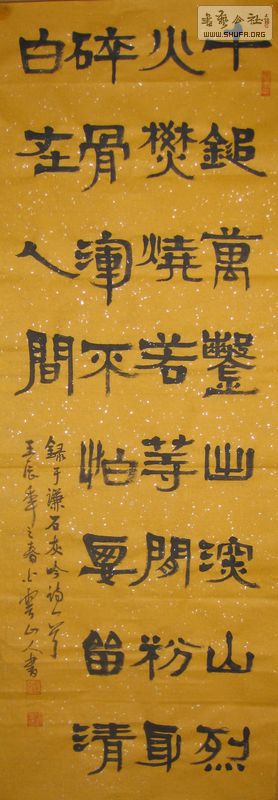 千鎚萬鑿出深山烈
火燓燒若等間粉身
碎骨渾不怕要留清
白在人間
録于謙石灰吟詩一首
壬辰年之春小雲山人書
書藝公社
WWW.SHUFA.ORG